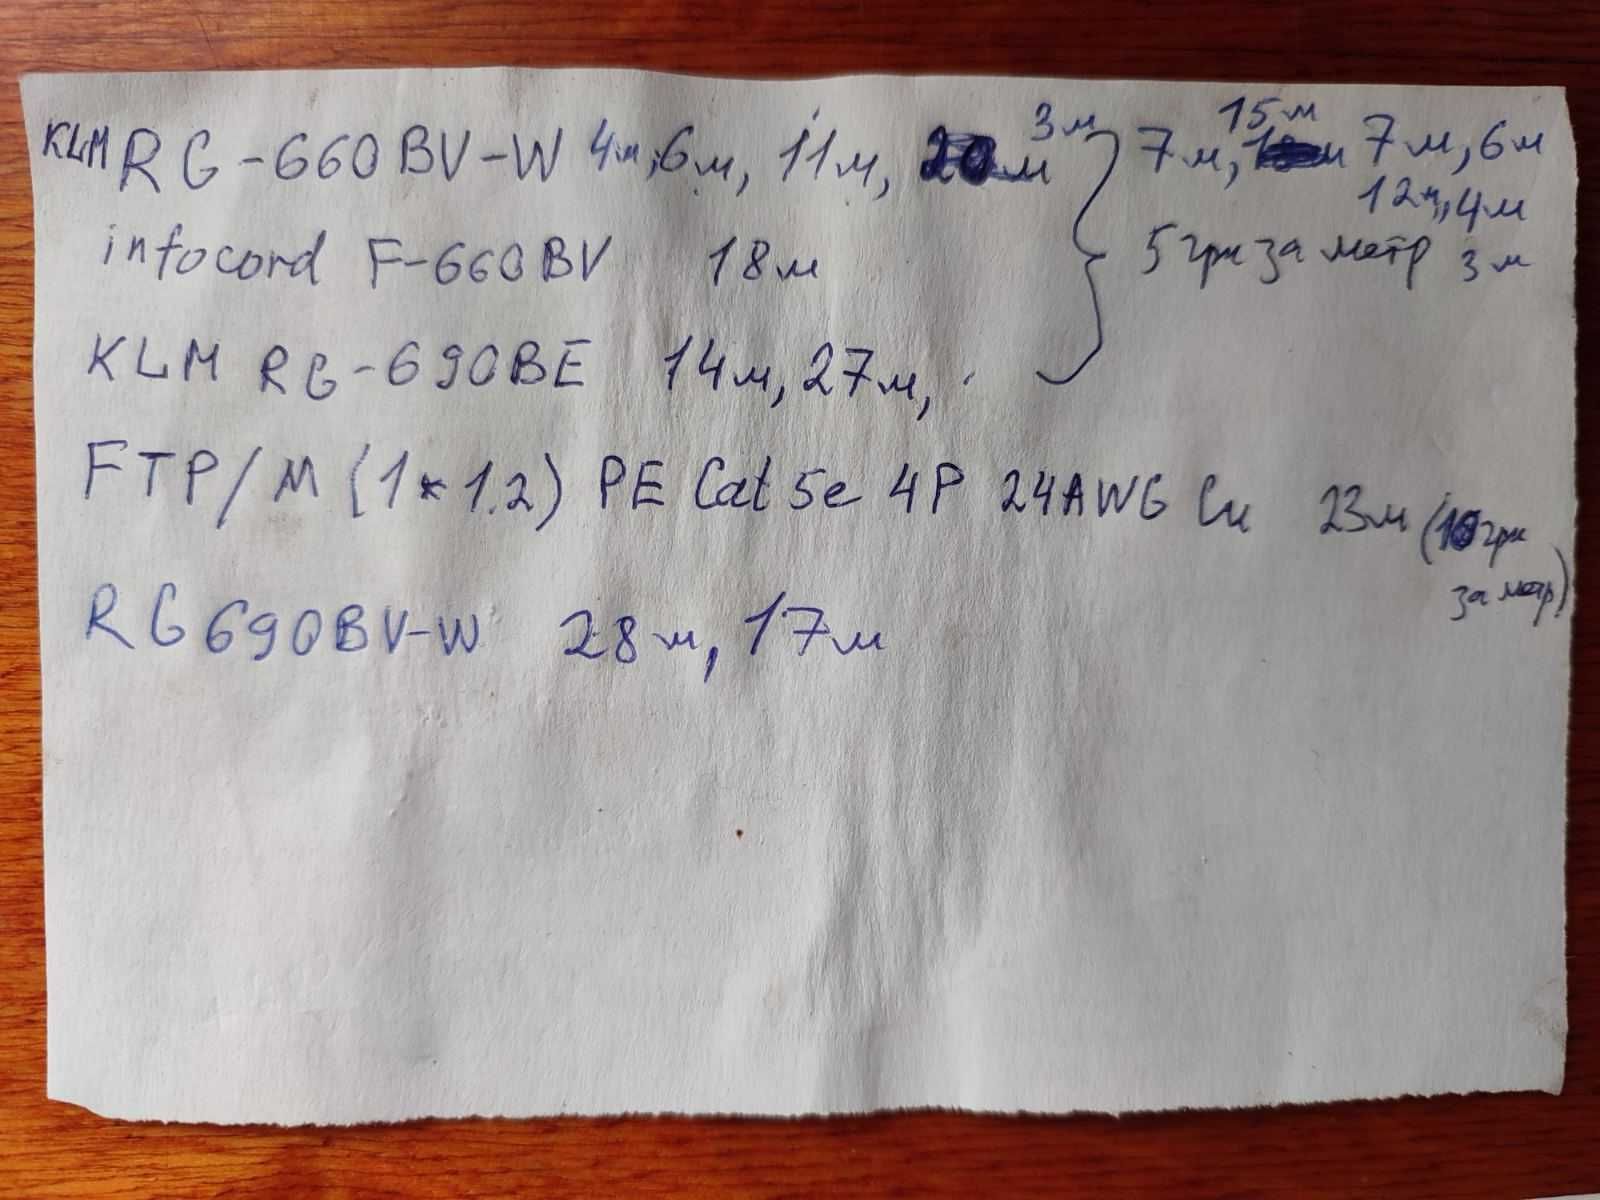 KLM RG-660BV-W 4м, 6м, 11м, 3м 7м, 15м 7м, 6м
12м, 4м
infocord F-660BV 18м 5 грн за метр 3м
KLM RG-690BE 14м, 27м,
FTP/M (1*1.2) PE Cat 5e 4P 24AWG Cu 23м (10 грн
за метр)
RG 690BV-W 28м, 17м